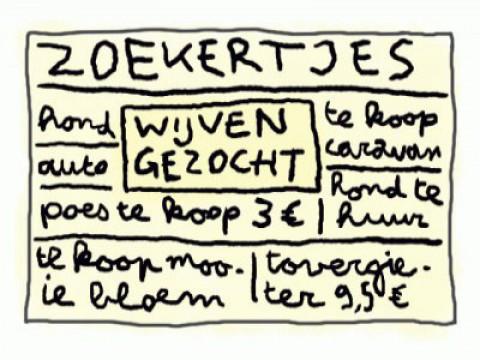 ZOEKERTJES
hond
auto
WIJVEN
GEZOCHT
te koop
caravan
hond te
huur
poes te koop 3 €
te koop moo-
ie bloem
tovergie-
ter 9,5 €